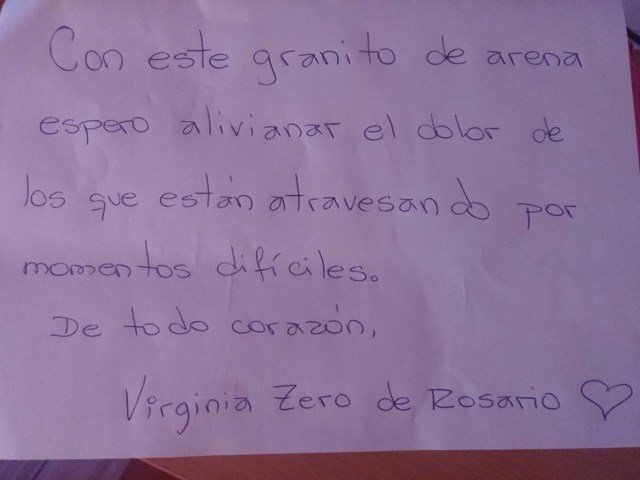 Con este granito de arena
espero alivianar el dolor de
los que están atravesando por
momentos difíciles.
De todo corazón,
Virginia Zero de Rosario ♡